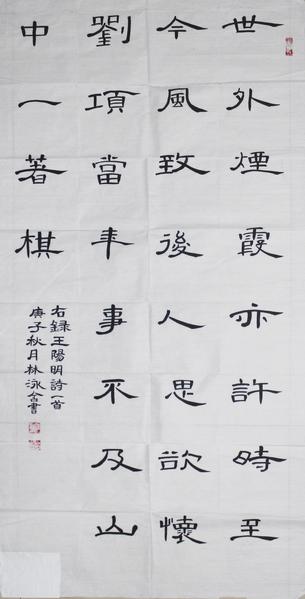 世外煙霞亦許時至
今風致後人思欲懷
劉項當年事不及山
中一著棋
右録王陽明詩一首
庚子秋月林泳合書